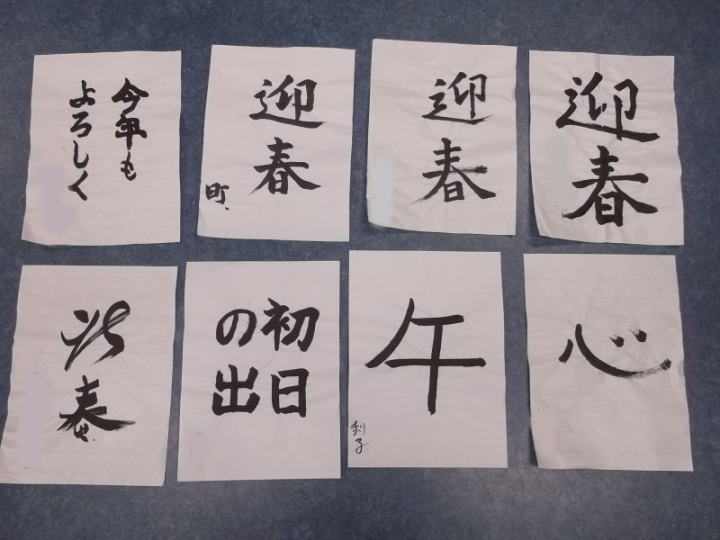 今年も
よろしく
迎春
町
迎春
迎春
春
初日
の出
午
利子
心